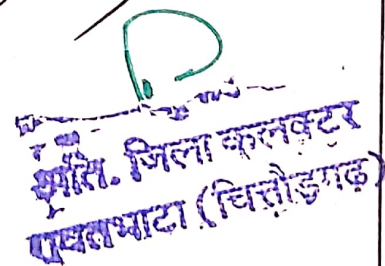 अति. जिला कलक्टर
रावतभाटा (चित्तौड़गढ़)